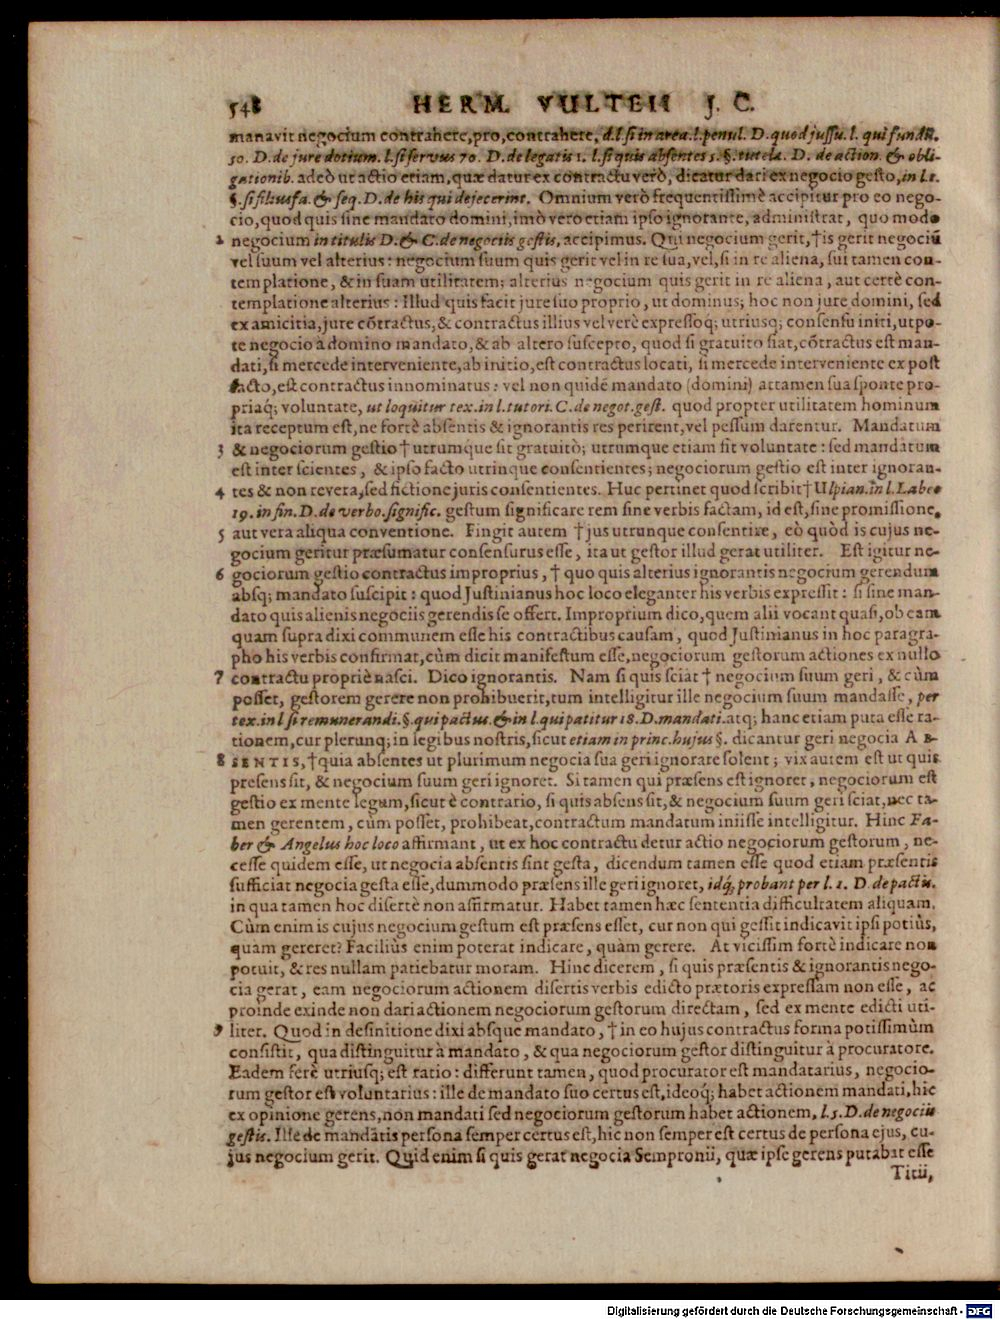 548 HERM. VULTEII J. C.
manavit negocium contrahere, pro, contrahere, d.l. si in area. l. penul. D. quod jussu. l. qui fundũ.
50. D. de jure dotium. l. si servus 70. D. de legatis 1. l. si quis absentes 5. §. tutela. D. de action. & obli-
gationib. adeò ut actio etiam, quæ datur ex contractu verò, dicatur dari ex negocio gesto, in l. 1.
§. si filiusfa. & seq. D. de his qui dejecerint. Omnium verò frequentissimè accipitur pro eo nego-
cio, quod quis sine mandato domini, imò vero etiam ipso ignorante, administrat, quo modo
2 negocium in titulis D. & C. de negociis gestis, accipimus. Qui negocium gerit, † is gerit negociũ
vel suum vel alterius: negocium suum quis gerit vel in re sua, vel, si in re aliena, sui tamen con-
templatione, & in suam utilitatem; alterius negocium quis gerit in re aliena, aut certè con-
templatione alterius: Illud quis facit jure suo proprio, ut dominus; hoc non jure domini, sed
ex amicitia, jure cõtractus, & contractus illius vel verè expressoq; utriusq; consensu initi, utpo-
te negocio à domino mandato, & ab altero suscepto, quod si gratuito fiat, cõtractus est man-
dati, si mercede interveniente, ab initio, est contractus locati, si mercede interveniente ex post
facto, est contractus innominatus: vel non quidẽ mandato (domini) attamen sua sponte pro-
priaq; voluntate, ut loquitur tex. in l. tutori. C. de negot. gest. quod propter utilitatem hominum
ita receptum est, ne fortè absentis & ignorantis res perirent, vel pessum darentur. Mandatum
3 & negociorum gestio † utrumque fit gratuitò; utrumque etiam fit voluntate: sed mandatum
est inter scientes, & ipso facto utrinque consentientes; negociorum gestio est inter ignoran-
4 tes & non revera, sed fictione juris consentientes. Huc pertinet quod scribit † Ulpian. in l. Labeo
19. in fin. D. de verbo. signific. gestum significare rem sine verbis factam, id est, sine promissione,
5 aut vera aliqua conventione. Fingit autem † jus utrunque consentire, eò quòd is cujus ne-
gocium geritur præsumatur consensurus esse, ita ut gestor illud gerat utiliter. Est igitur ne-
6 gociorum gestio contractus improprius, † quo quis alterius ignorantis negocium gerendum
absq; mandato suscipit: quod Justinianus hoc loco eleganter his verbis expressit: si sine man-
dato quis alienis negociis gerendis se offert. Improprium dico, quem alii vocant quasi, ob eam
quam supra dixi communem esse his contractibus causam, quod Justinianus in hoc paragra-
pho his verbis confirmat, cùm dicit manifestum esse, negociorum gestorum actiones ex nullo
7 contractu propriè nasci. Dico ignorantis. Nam si quis sciat † negocium suum geri, & cùm
posset, gestorem gerere non prohibuerit, tum intelligitur ille negocium suum mandasse, per
tex. in l. si remunerandi. §. qui pactus. & in l. qui patitur 18. D. mandati. atq; hanc etiam puta esse ra-
tionem, cur plerunq; in legibus nostris, sicut etiam in princ. hujus §. dicantur geri negocia AB-
8 SENTIS, † quia absentes ut plurimum negocia sua geri ignorare solent; vix autem est ut quis
presens sit, & negocium suum geri ignoret. Si tamen qui præsens est ignoret, negociorum est
gestio ex mente legum, sicut è contrario, si quis absens sit, & negocium suum geri sciat, nec ta-
men gerentem, cùm posset, prohibeat, contractum mandatum iniisse intelligitur. Hinc Fa-
ber & Angelus hoc loco affirmant, ut ex hoc contractu detur actio negociorum gestorum, ne-
cesse quidem esse, ut negocia absentis sint gesta, dicendum tamen esse quod etiam præsentis
sufficiat negocia gesta esse, dummodo præsens ille geri ignoret, idq; probant per l. 1. D. de pactis.
in qua tamen hoc disertè non affirmatur. Habet tamen hæc sententia difficultatem aliquam.
Cùm enim is cujus negocium gestum est præsens esset, cur non qui gessit indicavit ipsi potiùs,
quàm gereret? Faciliùs enim poterat indicare, quàm gerere. At vicissim fortè indicare non
potuit, & res nullam patiebatur moram. Hinc dicerem, si quis præsentis & ignorantis nego-
cia gerat, eam negociorum actionem disertis verbis edicto prætoris expressam non esse, ac
proinde exinde non dari actionem negociorum gestorum directam, sed ex mente edicti uti-
9 liter. Quod in definitione dixi absque mandato, † in eo hujus contractus forma potissimùm
consistit, qua distinguitur à mandato, & qua negociorum gestor distinguitur à procuratore.
Eadem ferè utriusq; est ratio: differunt tamen, quod procurator est mandatarius, negocio-
rum gestor est voluntarius: ille de mandato suo certus est, ideoq; habet actionem mandati, hic
ex opinione gerens, non mandati sed negociorum gestorum habet actionem, l. 5. D. de negociis
gestis. Ille de mandãtis persona semper certus est, hic non semper est certus de persona ejus, cu-
jus negocium gerit. Quid enim si quis gerat negocia Sempronii, quæ ipse gerens putabat esse
Titii,
Digitalisierung gefördert durch die Deutsche Forschungsgemeinschaft - DFG